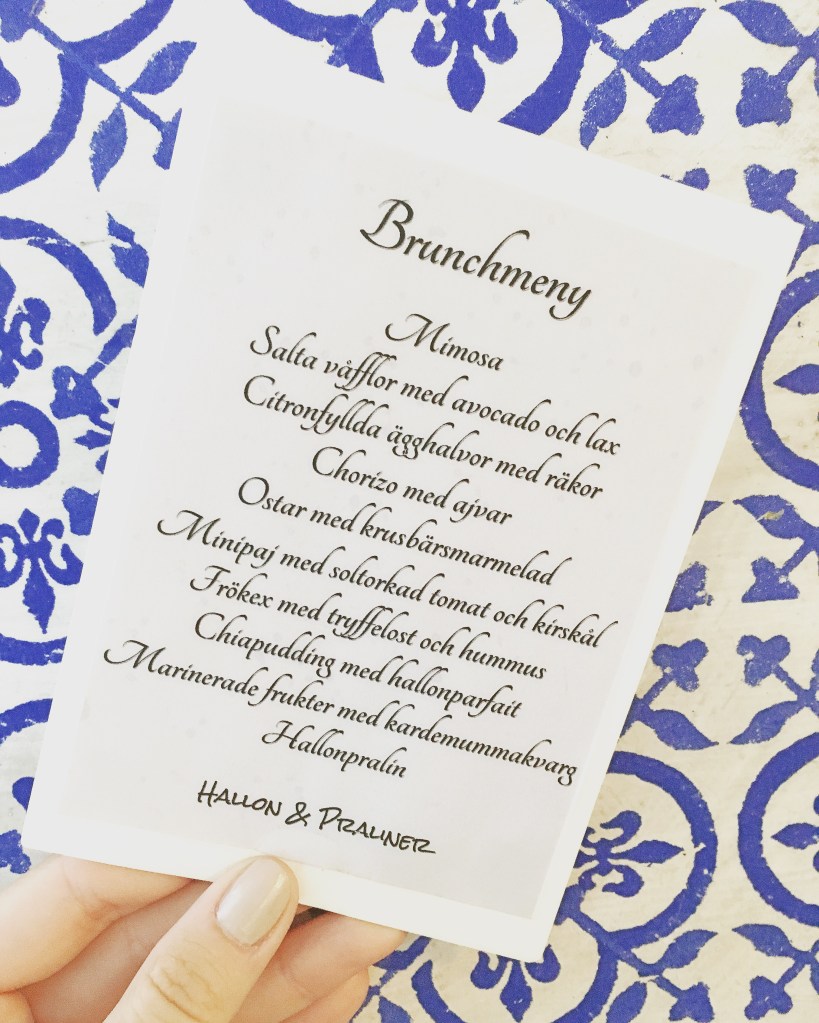 Brunchmeny
Mimosa
Salta våfflor med avocado och lax
Citronfyllda ägghalvor med räkor
Chorizo med ajvar
Ostar med krusbärsmarmelad
Minipaj med soltorkad tomat och kirskål
Frökex med tryffelost och hummus
Chiapudding med hallonparfait
Marinerade frukter med kardemummakvarg
Hallonpralin
Hallon & Praliner